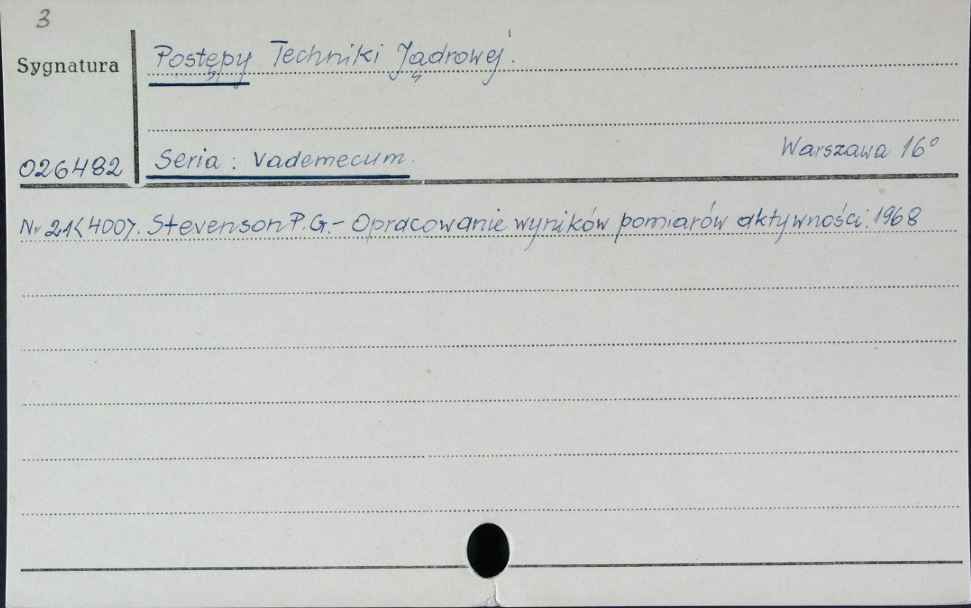 3
Sygnatura
Postępy Techniki Jądrowej.
026482
Seria: Vademecum.
Warszawa 16°
Nr 21<400>. Stevenson P.G.- Opracowanie wyników pomiarów aktywności. 1968